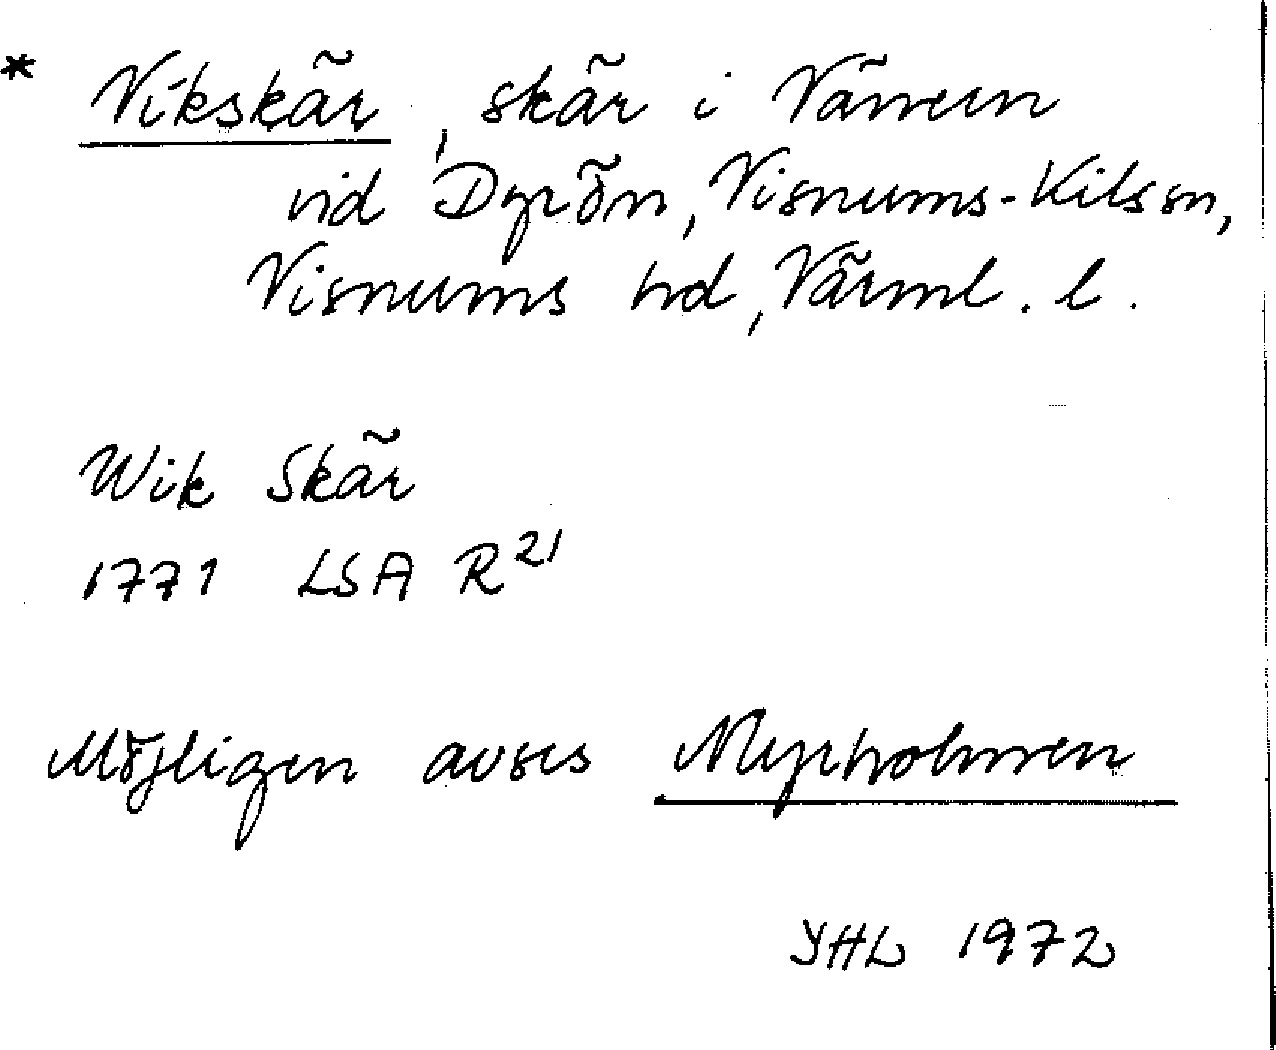 * Vikskär, skär i Vänern
vid Dyrön, Visnums-Kils sn,
Visnums hd, Värml. l.
Wik Skär
1771 LSA R 21
Möjligen avses Myrholmen
YHL 1972